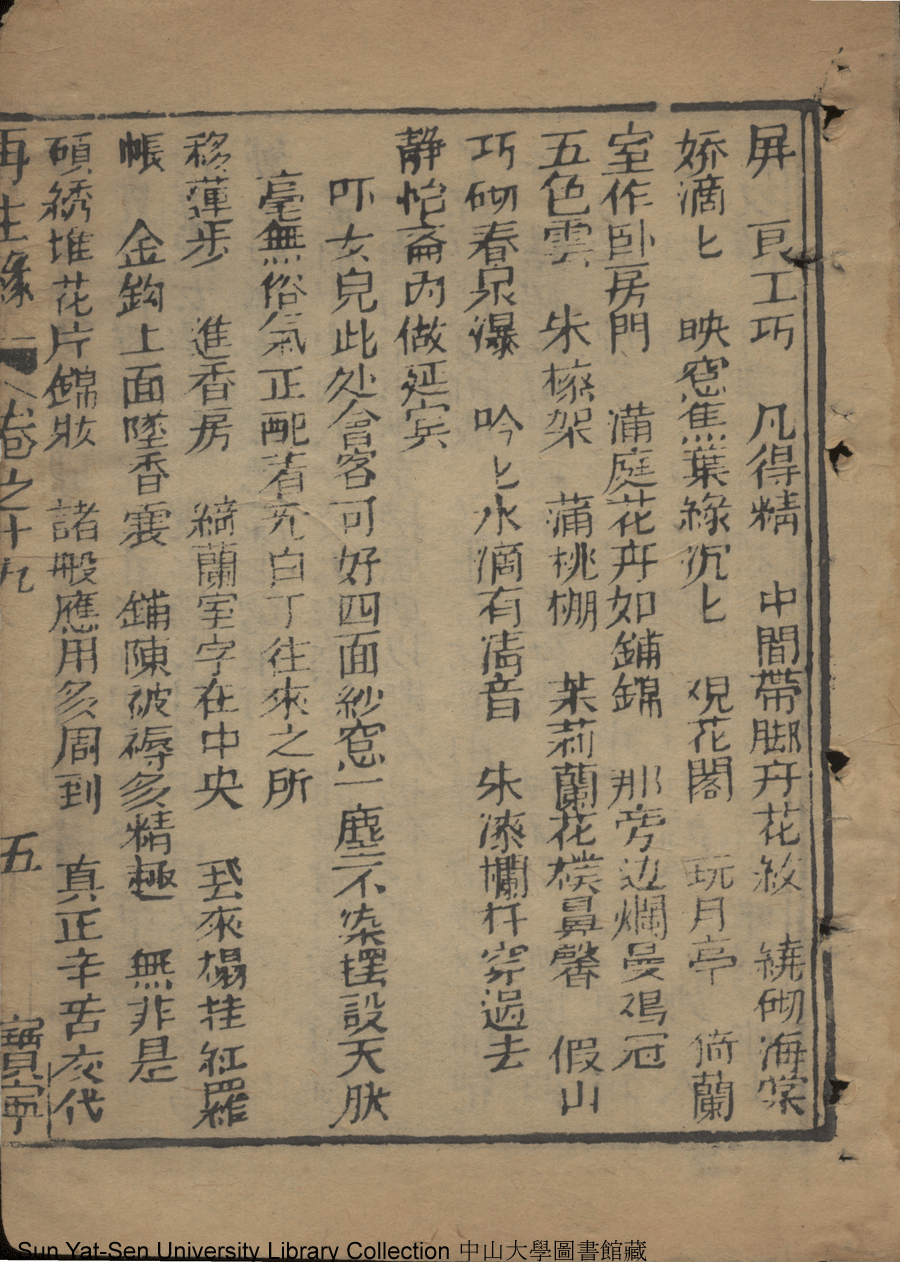 屏　良工巧　凡得精　中間帶脚卉花放　繞砌海棠
娇滴匕　映窓蕉葉綠沉匕　覌花閣　玩月亭　倚蘭
室作卧房門　滿庭花卉如鋪錦　那旁边爛曼鳮冠
五色雲　朱椽架　蒲桃棚　茉莉蘭花樸鼻馨　假山
巧砌春泉瀑　吟匕水滴有清音　朱漆欄杆穿過去
静怡齋内做延宾
吓女兒此处會客可好四面紗窓一塵不染摆設天肰
毫無俗氣正配若无白丁往來之所
移蓮步　進香房　綺蘭室字在中央　來榻挂紅羅
帳　金鈎上面墜香囊　鋪陳被褥多精極　無非是
碩綉堆花片錦妝　諸般應用多周到　真正辛苦衣代
再生緣　卷之十九　五　寶寧
Sun Yat-Sen University Library Collection 中山大學圖書館藏